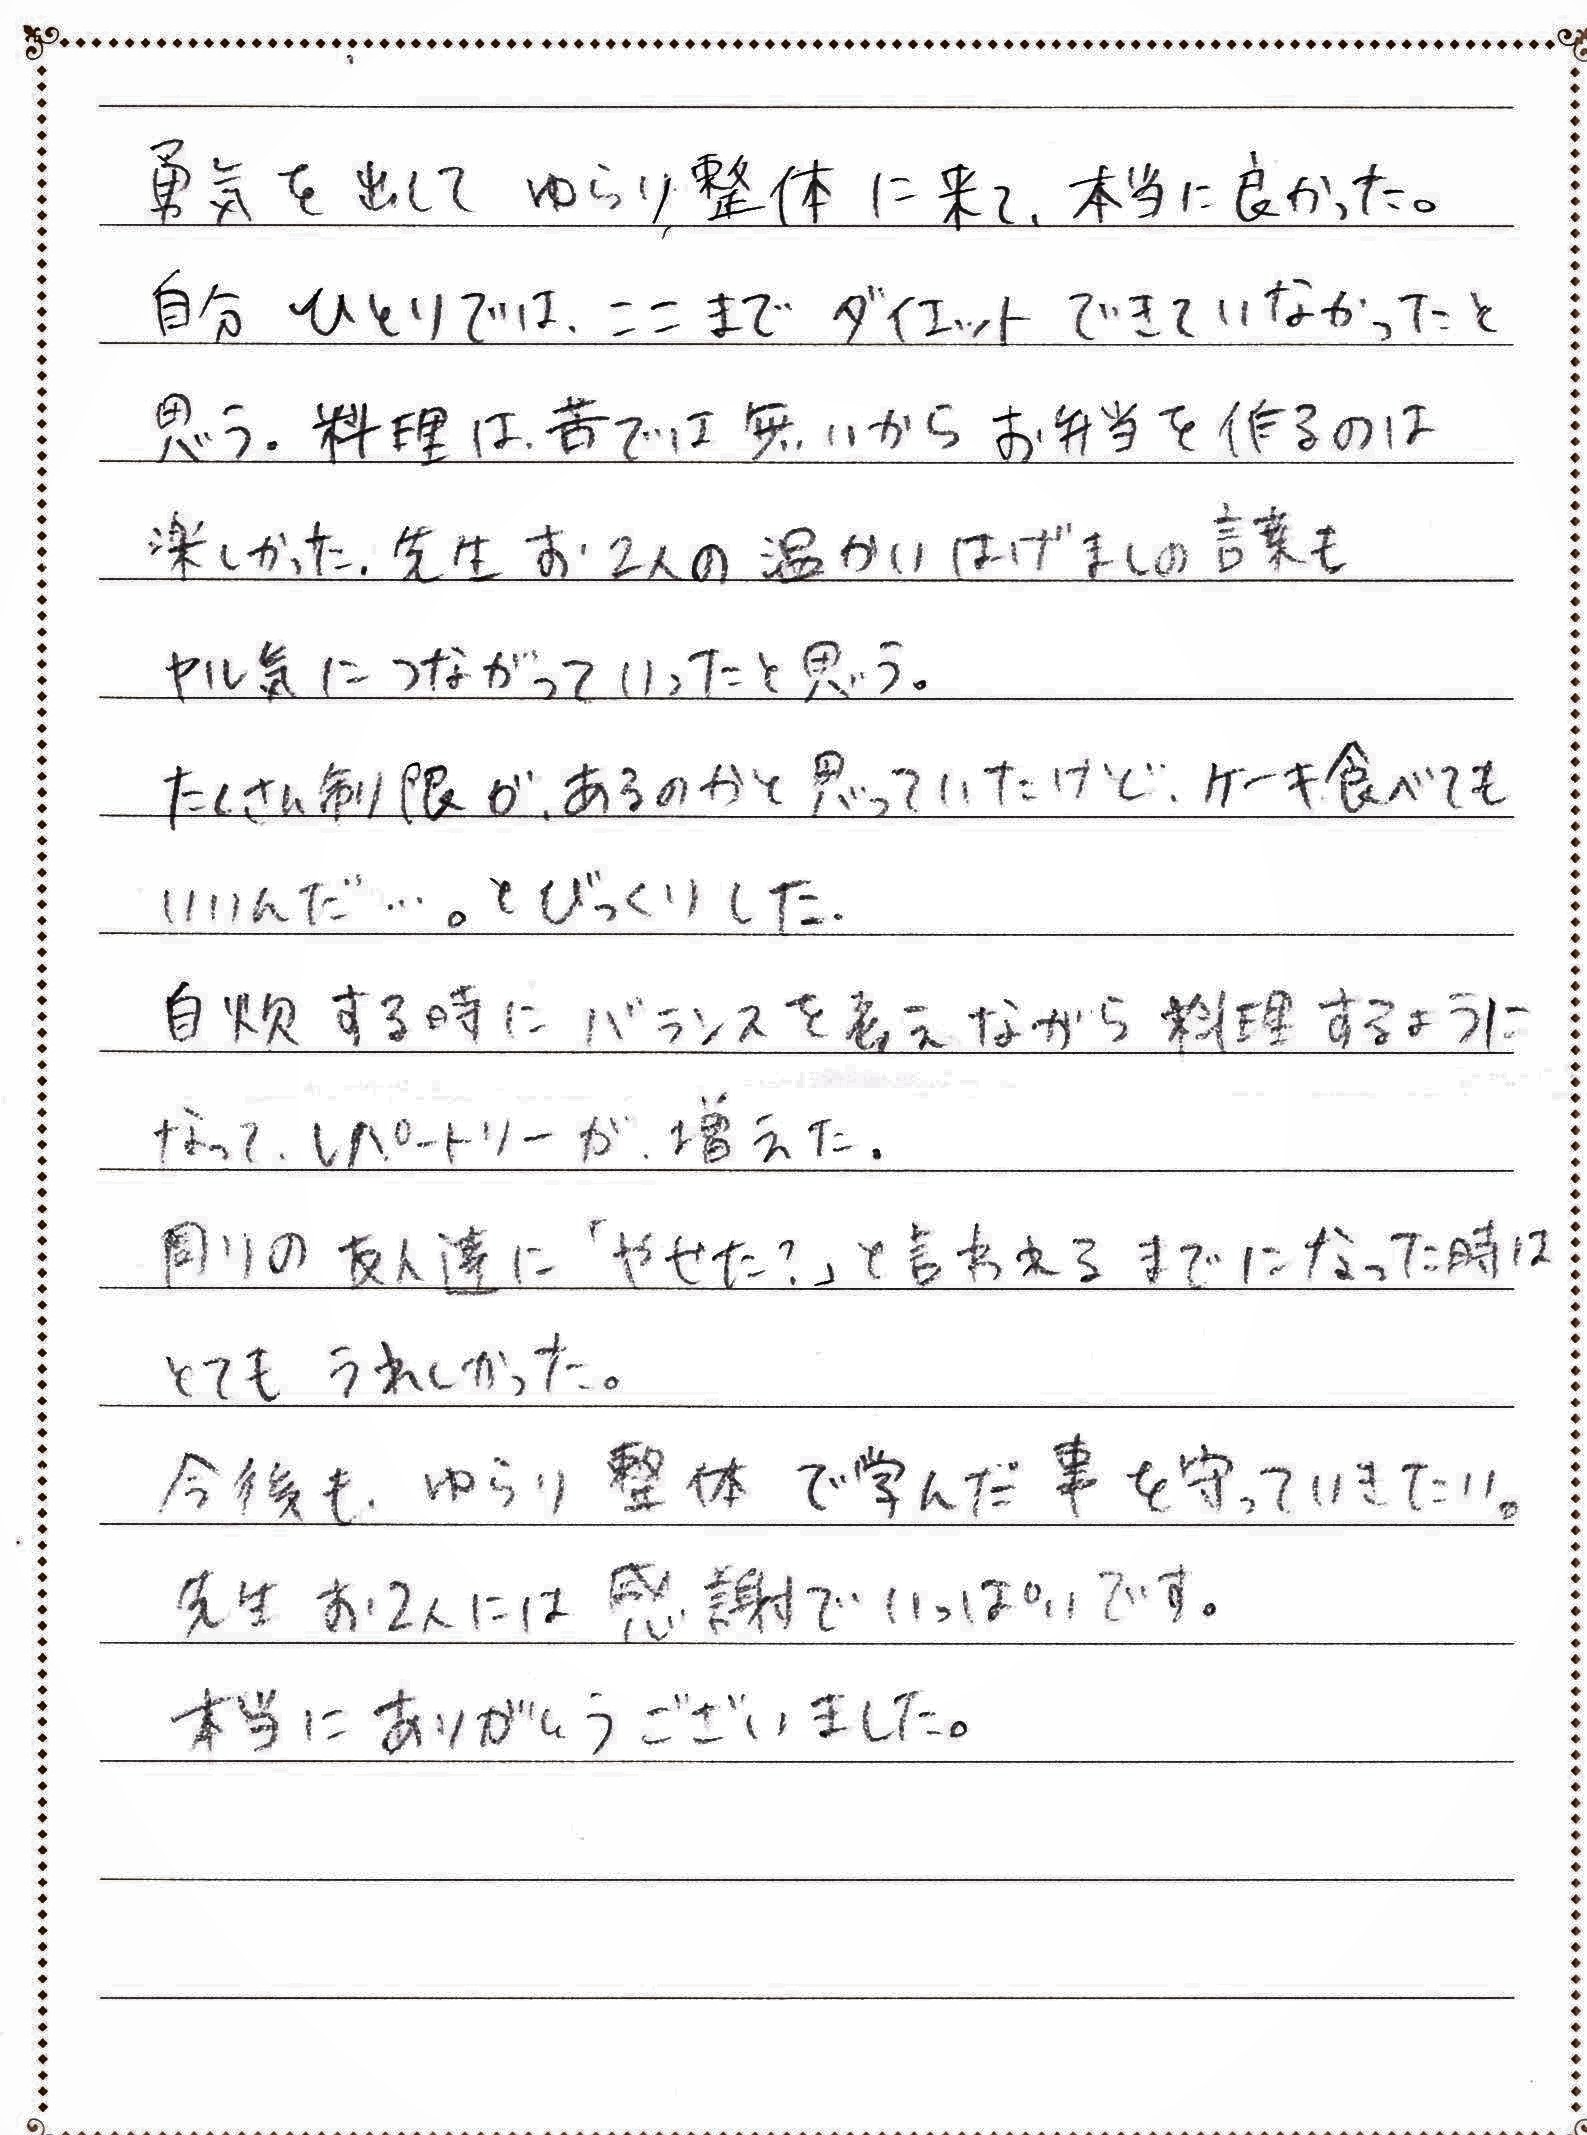 勇気を出して ゆらり整体に来て、本当に良かった。
自分ひとりでは、ここまでダイエットできていなかったと
思う。料理は、苦では無いからお弁当を作るのは
楽しかった。先生お2人の温かいはげましの言葉も
ヤル気につながっていったと思う。
たくさん制限が、あるのかと思っていたけど、ケーキ食べても
いいんだ…。とびっくりした。
自炊する時にバランスを考えながら料理するように
なって、レパートリーが、増えた。
周りの友人達に「やせた?」と言われるまでになった時は
とてもうれしかった。
今後も、ゆらり整体で学んだ事を守っていきたい。
先生お2人には感謝でいっぱいです。
本当にありがとうございました。